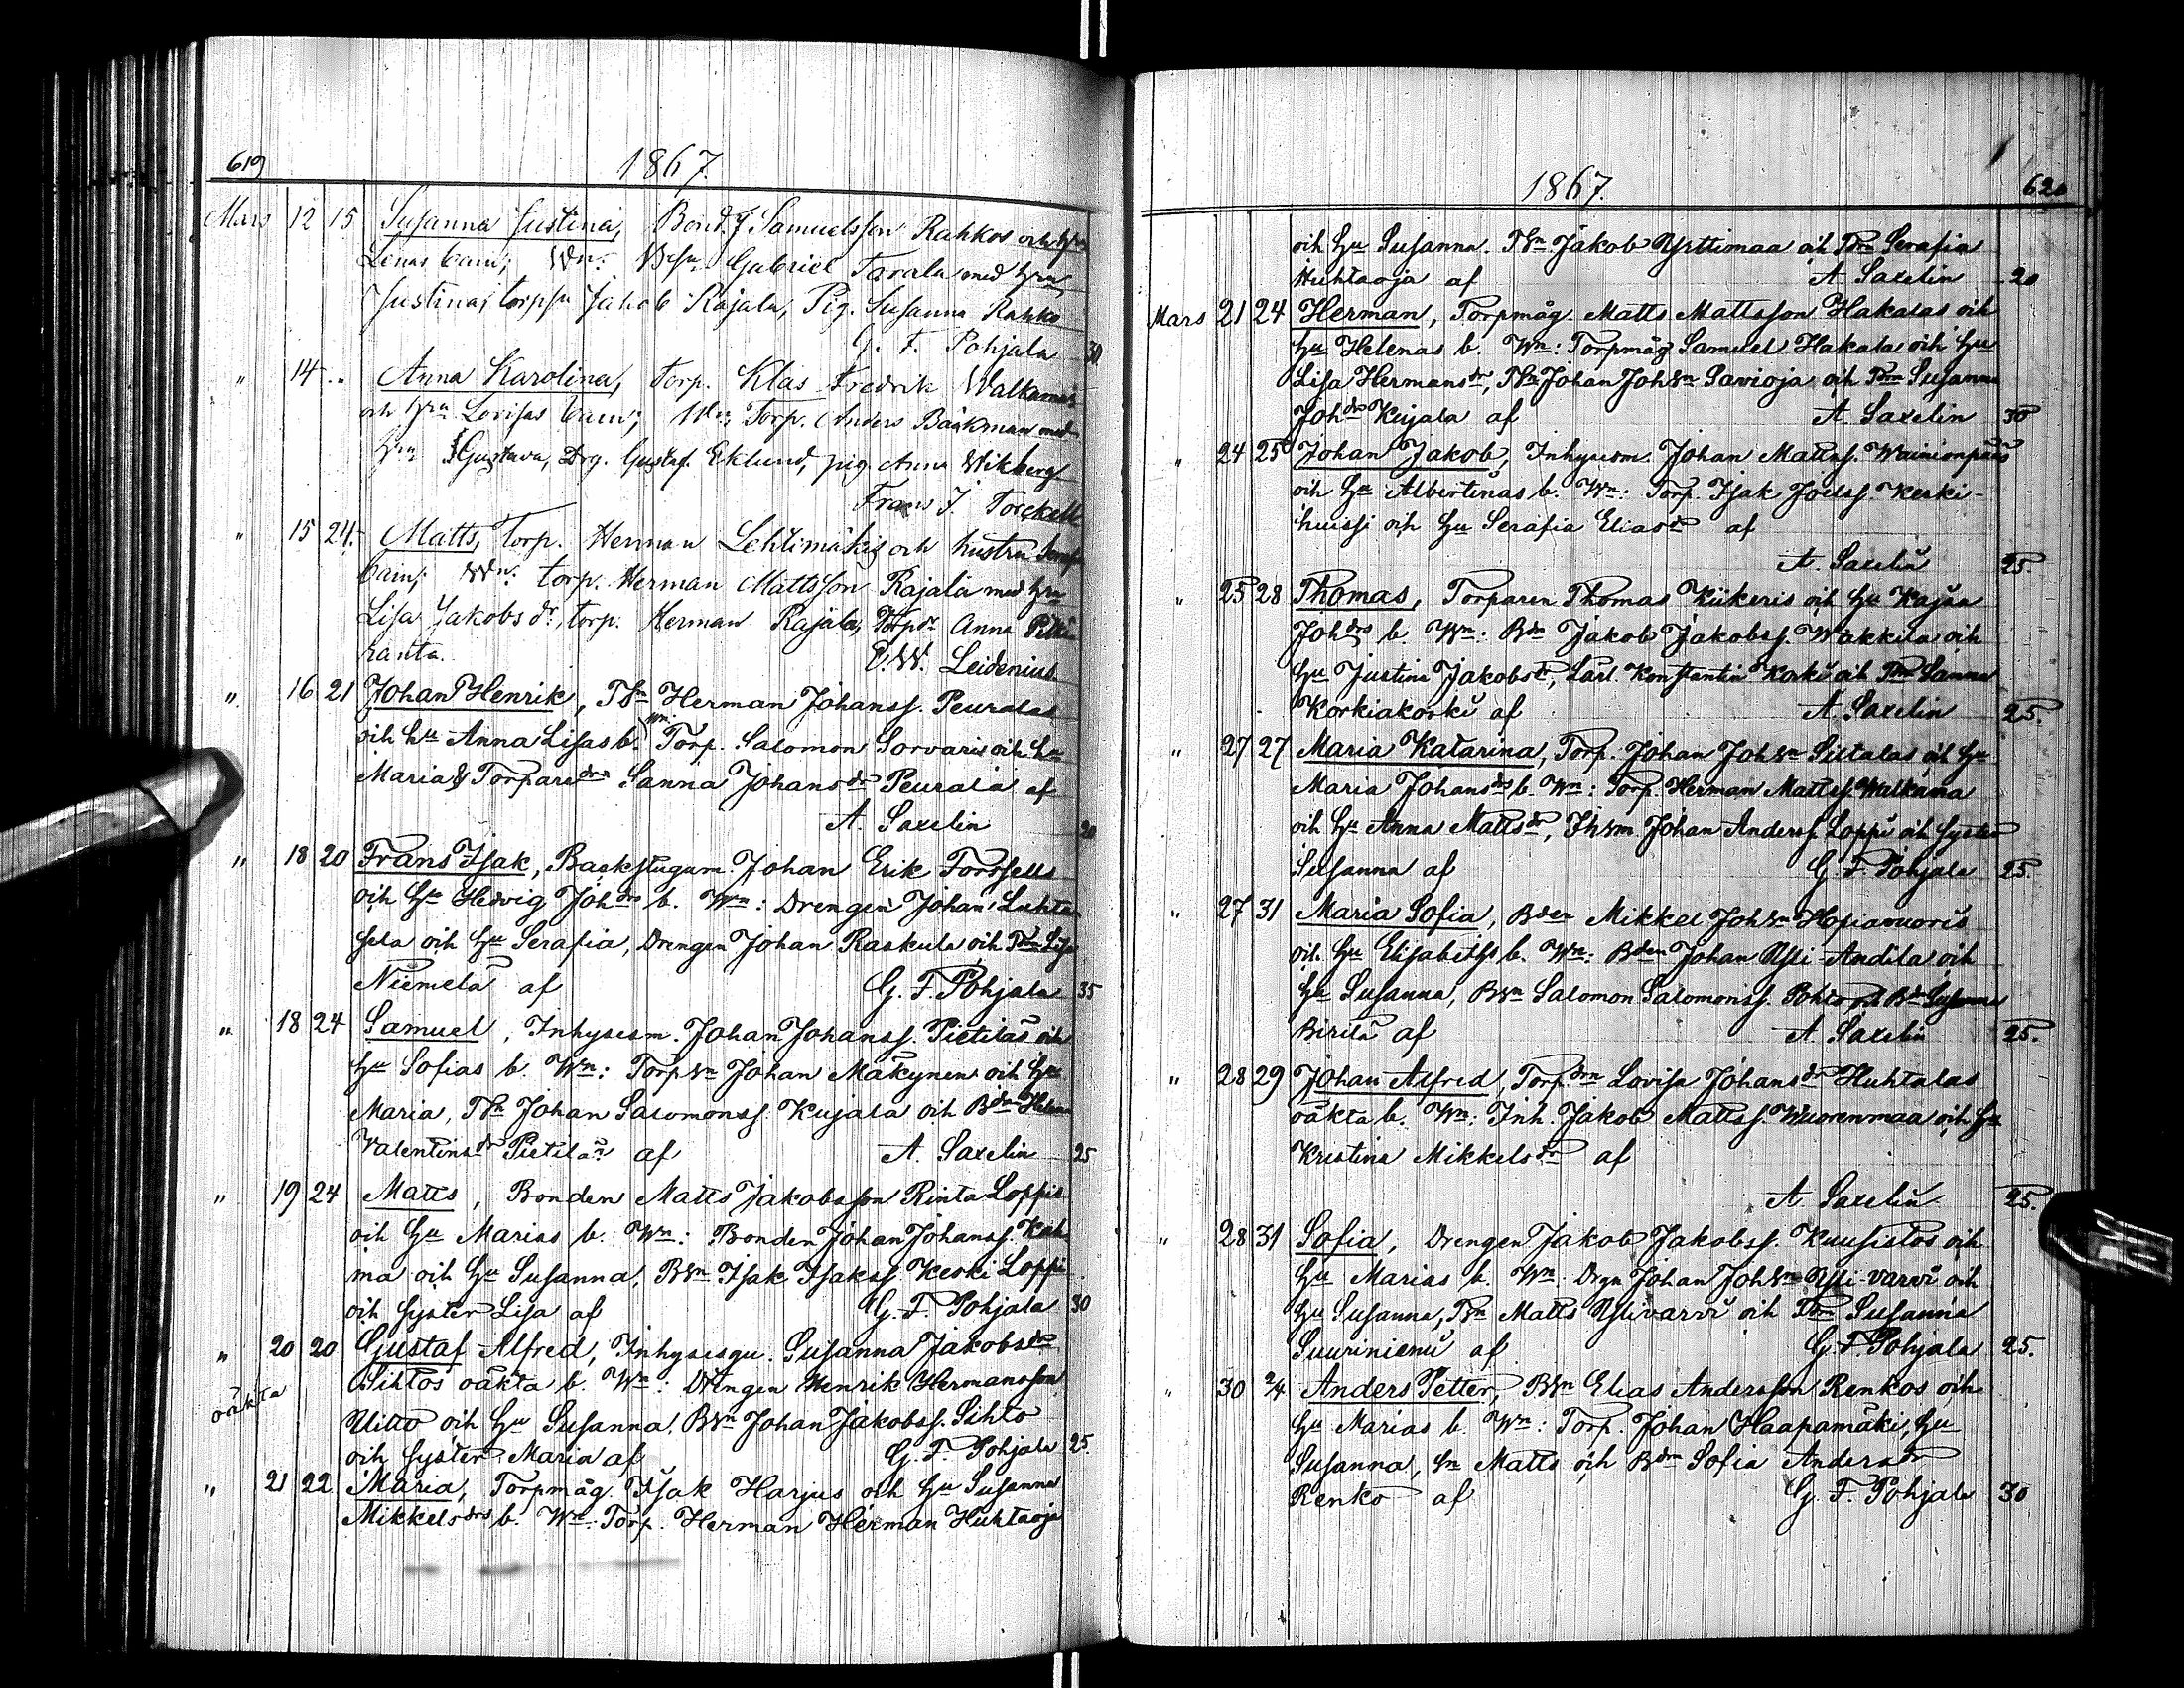 619
1867.
Mars 12 15 Susanna Justina, Bond. J Samuelsson Rahkos och hru
Lenas barn; Wn: Bsn Gabriel Tarala med hru
Justina, torpsn Jakob Rajala, Pig. Susanna Rahko
G. F. Pohjala 30.
" 14 .. Anna Karolina, torp. Klas Fredrik Walkamas
och hru Lovisas barn; Wn: Torp. Anders Bäckman med
hru Gustava, Drg. Gustaf Eklund, pig. Anna Wikberg
Frans J. Torckell
" 15 24. Matts, torp. Herman Lehtimäkis och hustru
barn; Wn: torp. Herman Mattsson Rajala med hru
Lisa Jakobsdr, torp. Herman Rajala, Torpdr Anna Pitkä
ranta. V. W. Leidenius
" 16 21 Johan Henrik, TSn Herman Johanss. Peuralas
och hu Anna Lisas b. Wn. Torp. Salomon Sorvaris och hu
Maria & Torparedrn Sanna Johansdr Peurala af
A. Saxelin 20
" 18 20 Frans Isak, Backstugum. Johan Erik Forssells
och hu Hedvig Johdrs b. Wn: Drengen Johan Luhta
sela och hu Serafia, Drengen Johan Raskula och Tdrn Lisa
Niemelä af G. F. Pohjala 35
" 18 24 Samuel, Inhysesm. Johan Johanss. Pietiläs och
hu Sofias b. Wn: Torpsn Johan Mäkynen och hu
Maria, TSn Johan Salomonss. Kujala och Bdrn Helena
Valentinsdr Pietilä af A. Saxelin 25
" 19 24 Matts, Bonden Matts Jakobsson Rinta Loppis
och hu Marias b. Wn: Bonden Johan Johanss. Kah
ma och hu Susanna, BSn Isak Isakss. Keski Loppi
och syster Lisa af G. F. Pohjala 30
" 20 20 Gustaf Alfred, Inhysesqu. Susanna Jakobsdrs
oäkta Sihtos oäkta b. Wn: Drengen Henrik Hermansson
Uitto och hu Susanna, BSn Johan Jakobss. Sihto
och syster Maria af G. F. Pohjala 25.
" 21 22 Maria, Torpmåg. Isak Harjus och hu Susanna
Mikkelsdrs b. Wn: Torp. Herman Herman Huhtaoja
1867. 620
och hu Susanna. TSn Jakob Yrttimaa och Tdrn Serafia
Huhtaoja af A. Saxelin 20
Mars 21 24 Herman, Torpmåg Matts Mattsson Hakalas och
hu Helenas b. Wn: Torpmåg Samuel Hakala och hu
Lisa Hermansdr, TSn Johan Johsn Savioja och Tdrn Susanna
Johdr Kujala af A. Saxelin 30
" 24 25 Johan Jakob, Inhysesm. Johan Mattss. Wainionpääs
och hu Albertinas b. Wn: Torp. Isak Joelss. Keski-
huissi och hu Serafia Eliasdr af
A. Saxelin 25.
" 25 28 Thomas, Torparen Thomas Kiikeris och hu Kajsa
Johdrs b. Wn: Bdn Jakob Jakobss. Wakkila och
hu Justina Jakobsdr, Lärl. Konstantin Korki och Tdrn Sanna
Korkiakoski af A. Saxelin 25.
" 27 27 Maria Katarina, Torp. Johan Johsn Siltalas och hu
Maria Johansdrs b. Wn: Torp. Herman Mattss. Walkama
och hu Anna Mattsdr, Ihsm. Johan Anderss. Loppi och syster
Susanna af G. F. Pohjala 25
" 27 31 Maria Sofia, Bden Mikkel Johsn Hopiavuoris
och hu Elisabeths b. Wn: Bden Johan Ysi-Andila och
hu Susanna, BSn Salomon Salomonss. Pohto och Bdr Susanna
Birilä af A. Saxelin 25.
" 28 29 Johan Alfred, Torpdrn Lovisa Johansdr Huhtalas
oäkta b. Wn: Inh. Jakob Mattss. Wuorenmaa och hu
Kristina Mikkelsdr af
A Saxelin 25.
" 28 31 Sofia, Drengen Jakob Jakobss. Kuusistos och
hu Marias b. Wn: Drgn Johan Johsn Ysi-varvi och
hu Susanna, TSn Matts Ylivarvi och Tdrn Susanna
Suuriniemi af G. F. Pohjala 25.
" 30 2/4 Anders Petter, BSn Elias Andersson Renkos och
hu Marias b. Wn: Torp. Johan Haapamäki, hu
Susanna, sn Matts och Bdrn Sofia Andersdr
Renko af G. F. Pohjala 30